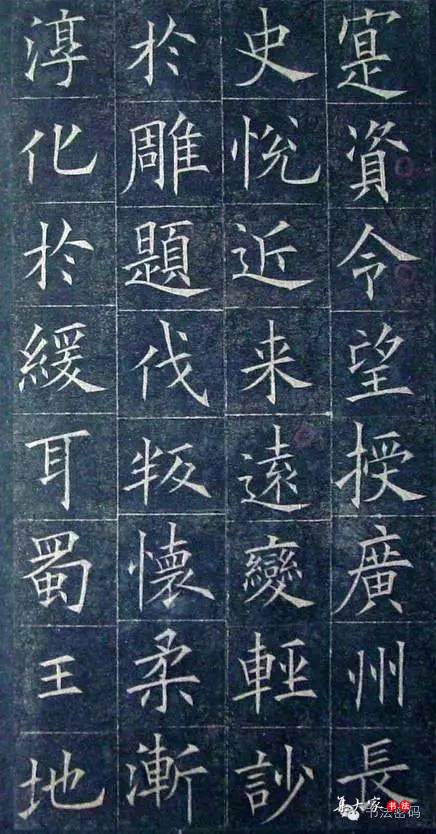 寔資令望授廣州長
史悅近来遠變輕訬
於雕題伐叛懷柔漸
淳化於緩耳蜀王地
集大家 书法
书法密码